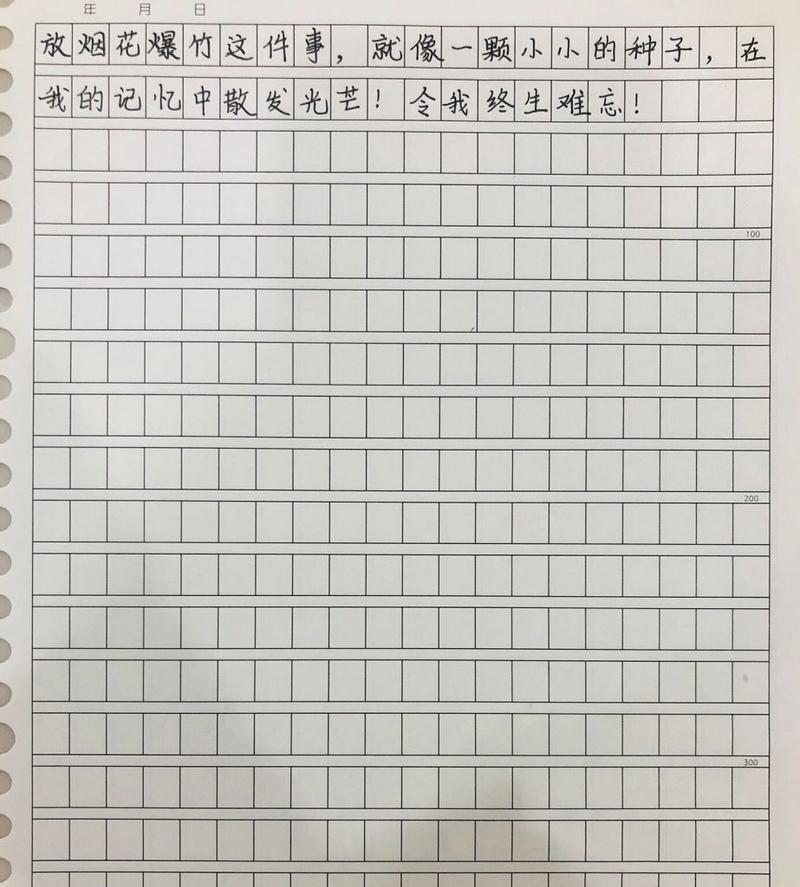 年 月 日
放烟花爆竹这件事，就像一颗小小的种子，在
我的记忆中散发光芒！令我终生难忘！
100
200
300